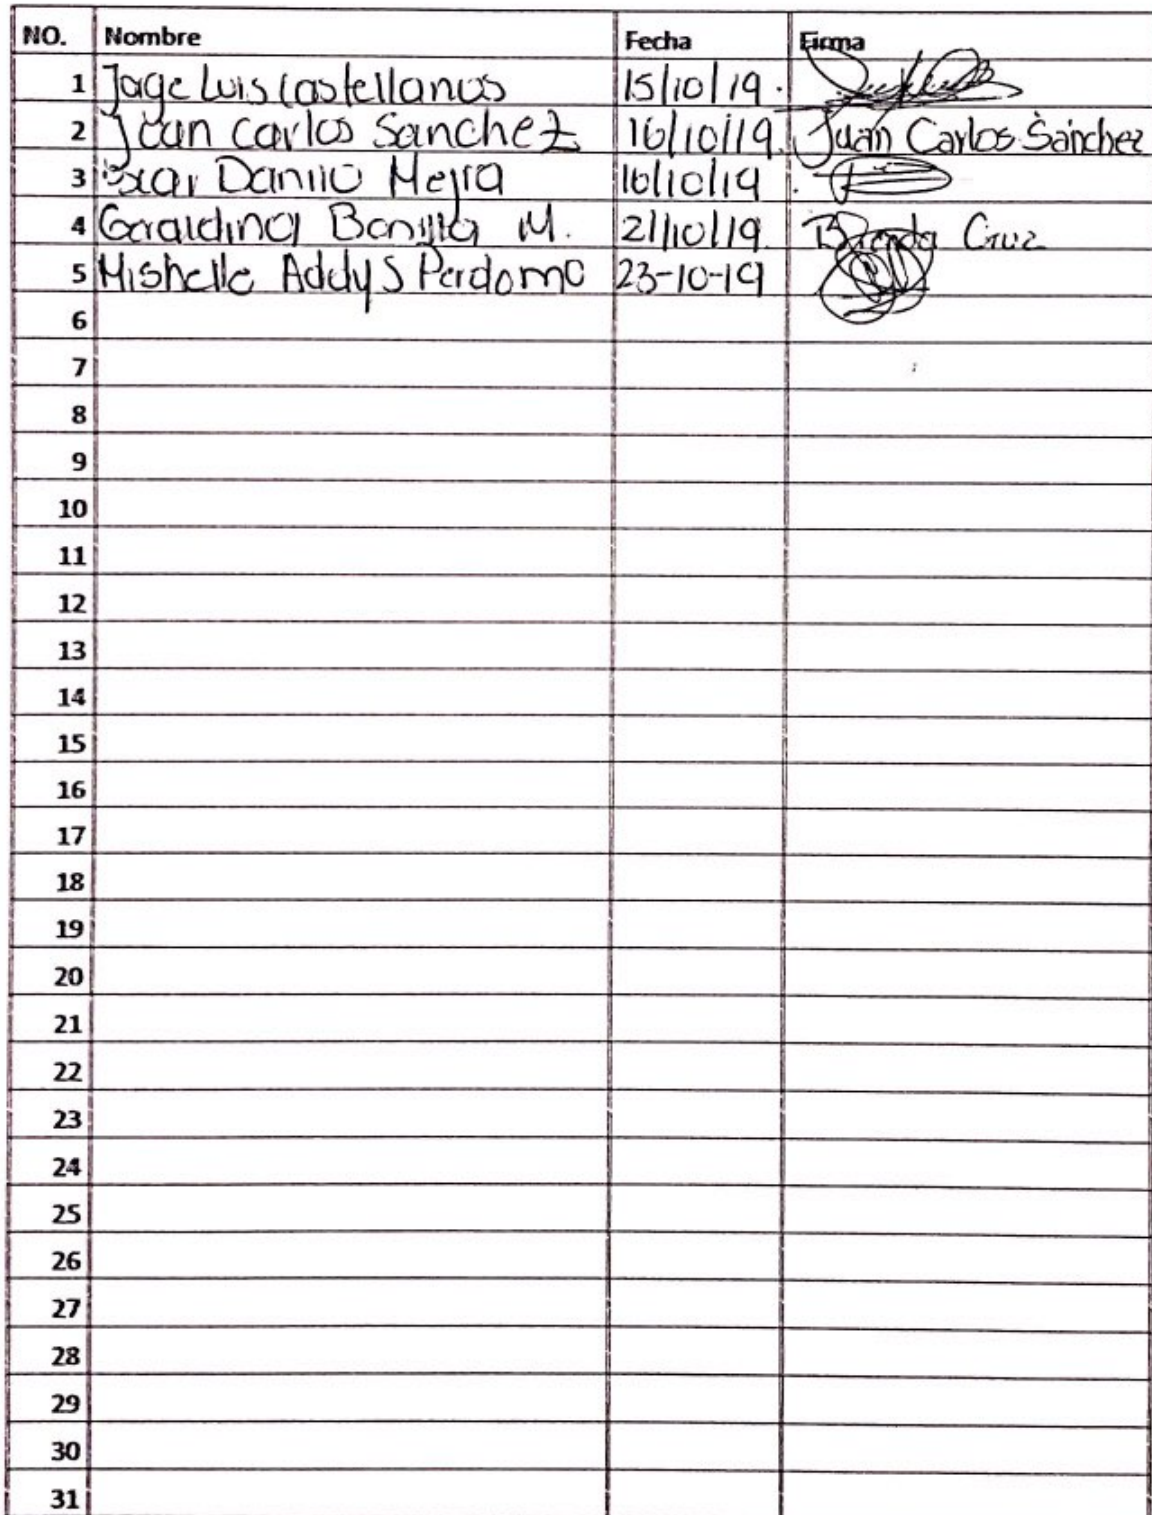 NO. Nombre Fecha Firma
1 Jorge Luis Castellanos 15/10/19.
2 Juan Carlos Sanchez 16/10/19. Juan Carlos Sánchez
3 Oscar Danilo Mejia 16/10/19
4 Geraldina Bonilla M. 21/10/19. Brenda Cruz
5 Mishelle Addys Perdomo 23-10-19
6
7
8
9
10
11
12
13
14
15
16
17
18
19
20
21
22
23
24
25
26
27
28
29
30
31